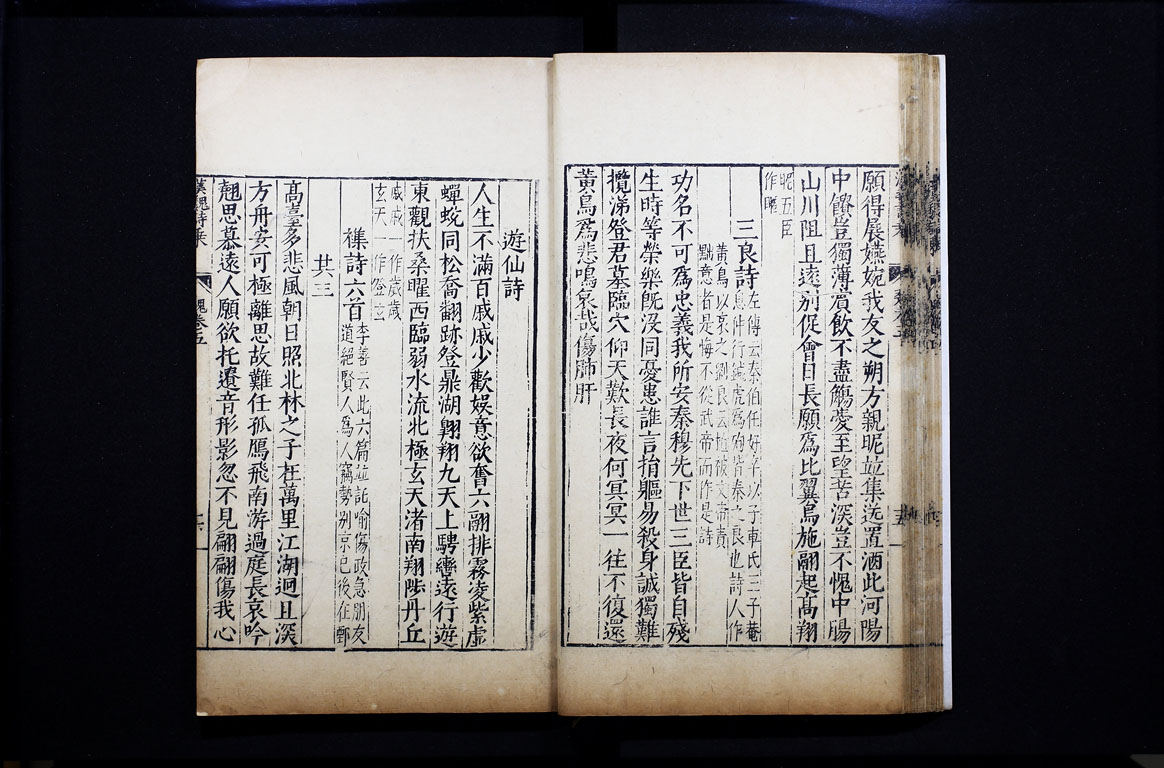 願得展嬿婉我友之朔方親昵並集送置酒此河陽
中饋豈獨薄賔飲不盡觴愛至望苦深豈不愧中腸
山川阻且遠别促會日長願爲比翼鳥施翮起髙翔
昵五臣
作暱
三良詩
左傳云秦伯任好卒以子車氏三子奄
息仲行鍼虎爲殉皆秦之良也詩人作
黄鳥以哀之劉良云植被文帝責
黜意者是悔不從武帝而作是詩
功名不可爲忠義我所安秦穆先下世三臣皆自殘
生時等榮樂旣沒同憂患誰言捐軀易殺身誠獨難
攬涕登君墓臨穴仰天歎長夜何冥冥一往不復還
黄鳥爲悲鳴哀哉傷肺肝
遊仙詩
人生不滿百戚戚少歡娱意欲奮六翮排霧凌紫虛
蟬蛻同松喬翻跡登鼎湖翺翔九天上騁轡遠行遊
東觀扶桑曜西臨弱水流北極玄天渚南翔陟丹丘
戚戚一作歲歲
玄天一作登玄
襍詩六首
李善云此六篇並託喻傷政急朋友
道絕賢人爲人竊勢别京已後在郢
其三
髙臺多悲風朝日照北林之子在萬里江湖迥且深
方舟安可極離思故難任孤鴈飛南游過庭長哀吟
翹思慕遠人願欲托遺音形影忽不見翩翩傷我心
漢魏詩乘
魏卷五